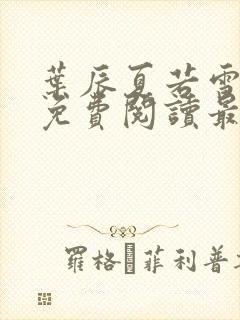 葉辰夏若雪
免費閱讀最
羅格·菲利普